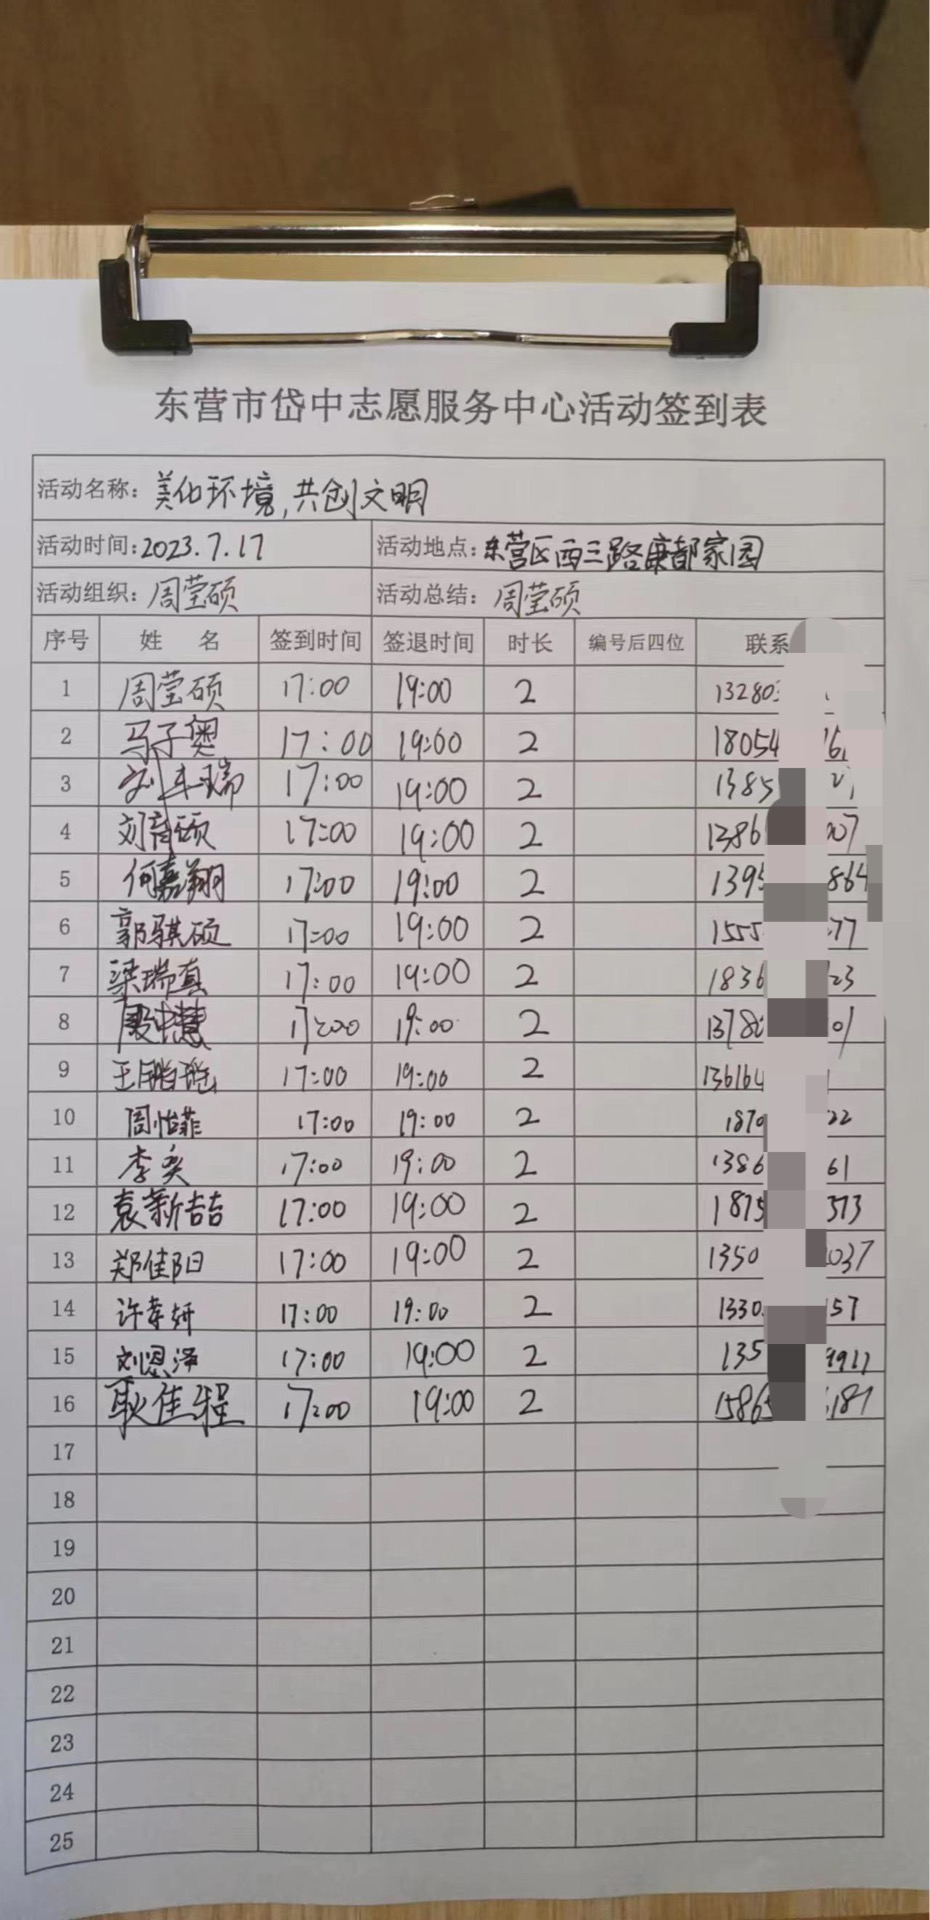 东营市岱中志愿服务中心活动签到表
活动名称：美化环境,共创文明
活动时间：2023.7.17 活动地点：东营区西三路康都家园
活动组织：周莹硕 活动总结：周莹硕
序号 姓 名 签到时间 签退时间 时长 编号后四位 联系
1 周莹硕 17:00 19:00 2 13280
2 马子奥 17:00 19:00 2 18054 16
3 17:00 19:00 2 1385
4 刘育硕 17:00 19:00 2 1386 007
5 何嘉翔 17:00 19:00 2 139 864
6 郭骐硕 17:00 19:00 2 1555 77
7 梁瑞真 17:00 19:00 2 1836 23
8 17:00 19:00 2 1378 01
9 17:00 19:00 2 13616
10 周怡菲 17:00 19:00 2 1870 22
11 李奕 17:00 19:00 2 1386 61
12 袁新喆 17:00 19:00 2 1875 573
13 郑佳阳 17:00 19:00 2 1350 037
14 许孝妍 17:00 19:00 2 1330 157
15 刘恩泽 17:00 19:00 2 135 9917
16 耿佳程 17:00 19:00 2 1586 187
17
18
19
20
21
22
23
24
25